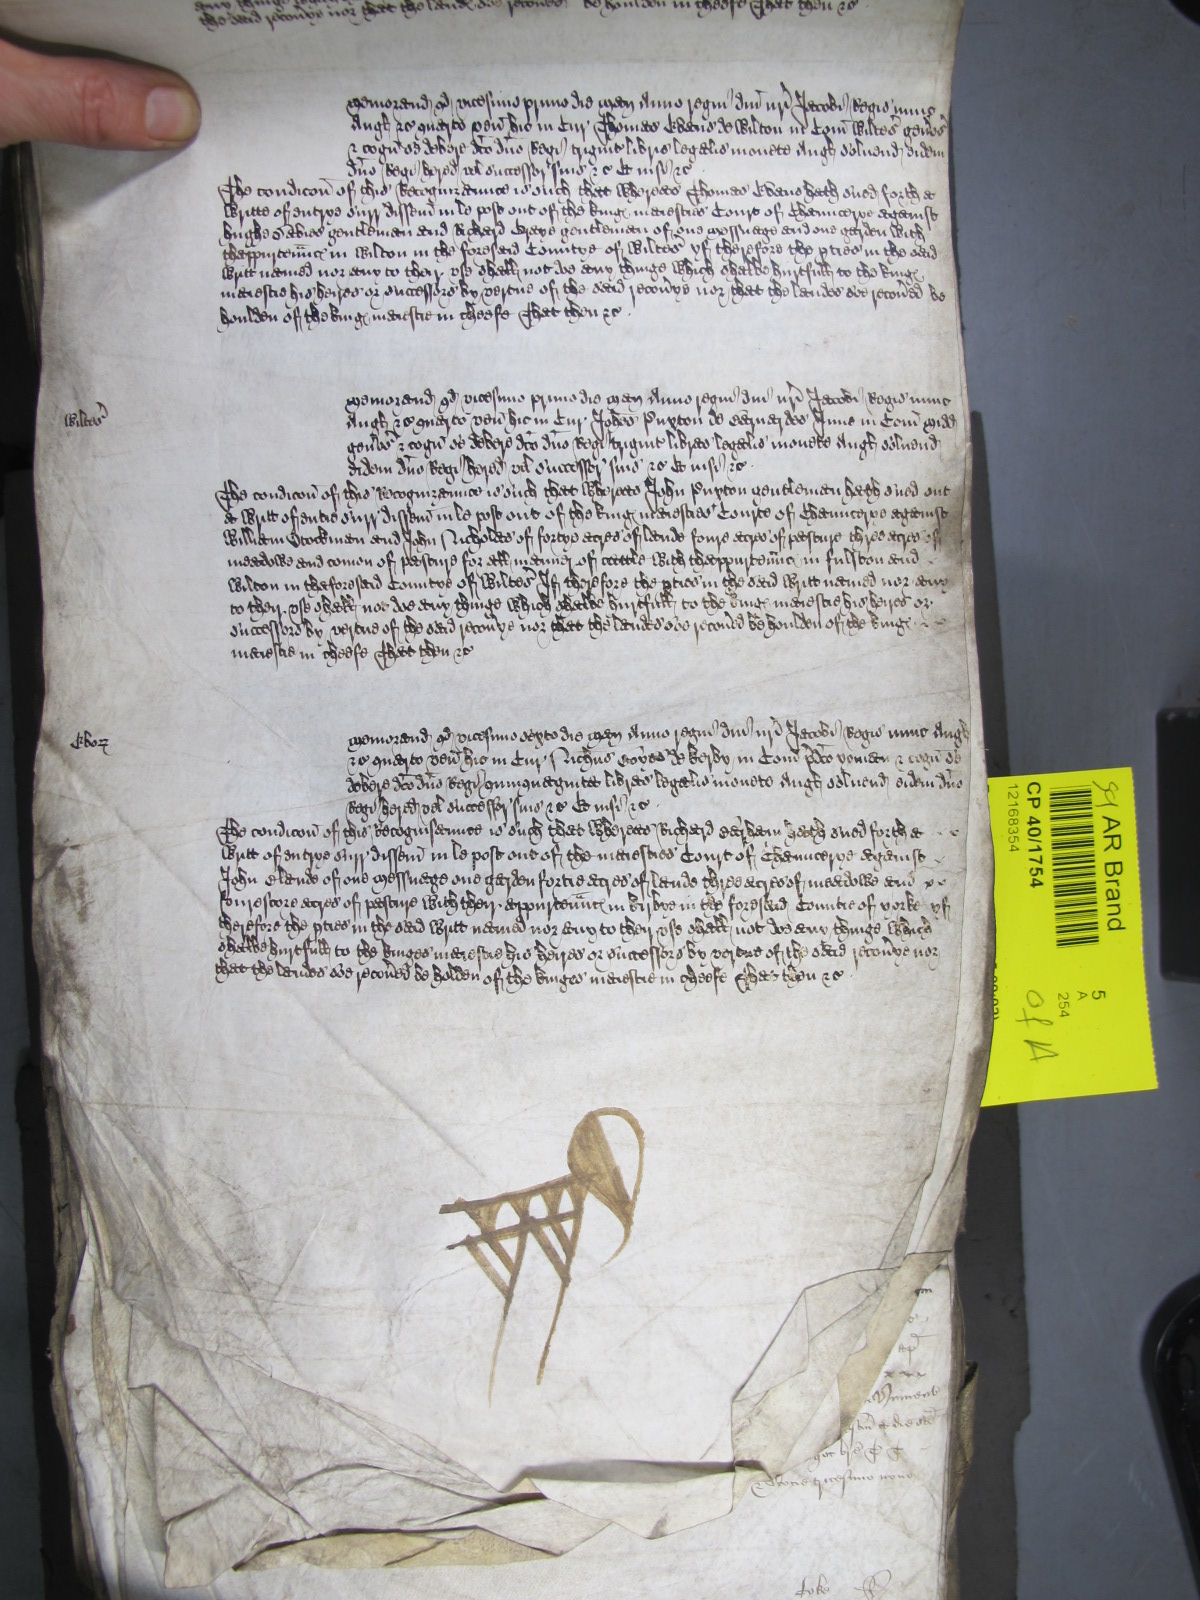 the said recoũye nor that the lands soe recoũed be houlden in cheefe That then &c
Memorand qd vicesimo primo die Maij Anno regni dni nri Jacobi Regis nunc
Angl &c quarto ven hic in Cur Thomas Evans de Wilton in Com Wiltes genos
& cogn se debere dco dno Regi trigint libris legalis monete Angl solvend eidem
dno Regi hered vel successor suis &c Et nisi &c
The condicon of this Recognizaunce is such that whereas Thomas Evans hath sued forth a
Writte of entrye surr disseim in le post out of the kings maiesties Court of Chauncerye against
hughe Davies gentleman and Richard Graye gentleman of one messuage and one garden with
thappurtennc in Wilton in the foresaid Countye of Wiltes yf therefore the pties in the said
writt named nor any to their use shall not doe any thinge which shalbe hurtfull to the kings
maiestie his heires or successors by vertue of the said recouye nor that the landes soe recoued be
houlden of the kings maiestie in cheefe That then &c
Wiltes
Memorand qd vicesimo primo die Maij Anno regni dni nri Jacobi Regis nunc
Angl &c quarto ven hic in Cur Johes Puxton de Barnardes Inne in Com Midd
genos & cogn se debere dco dno Regi trigint libras legalis monete Angl solvend
eidem dno Regi hered vel successor suis &c Et nisi &c
The condicon of this Recognizaunce is such that whereas John Puxton gentleman hath sued out
a writt of entrie surr disseim in le post out of the kings maiesties Courte of Chauncerye against
William Stockman and John Nicholas of fortye acres of lande foure acres of pasture three acres of
meadowe and comon of pasture for all manner of cattle with thappurtennc in fulston and
Wilton in the foresaid Countye of Wiltes If therefore the pties in the said writt named nor any
to their use shall not doe any thinge which shalbe hurtfull to the kings maiestie his heires or
successors by vertue of the said recouye nor that the landes soe recoued be houlden of the kings
maiestie in cheefe That then &c
Ebor
Memorand qd vicesimo sexto die Maij Anno regni dni nri Jacobi Regis nunc Angl
&c quarto ven hic in Cur Nichus de Kerby in Com pdco yoman & cogn se
debere dco dno Regi quinquagint libras legalis monete Angl solvend eidem dno
Regi hered vel successor suis &c Et nisi &c
The condicon of this Recognisaunce is such that whereas Richard hath sued forth a
writt of entrye surr disseim in le post out of the maiesties Court of Chauncerye against
John Elande of one messuage one garden fortie acres of lande three acres of meadowe and
fourescore acres of pasture with their appurtennc in Kirbye in the foresaid Countie of yorke yf
therefore the pties in the said writt named nor any to their use shall not doe any thinge which
shalbe hurtfull to the kinges maiestie his heires or successors by vertue of the said recouye nor
that the landes soe recoued be holden of the kinges maiestie in cheefe That then &c
AR Brand
CP 40/1754
12168354
5
A
254
Of A